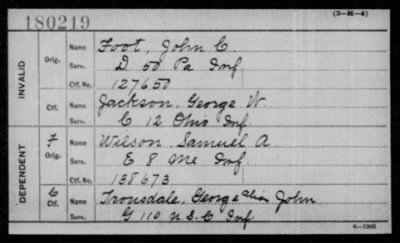 180219
(3—H—4)
INVALID
Orig.
Name Foot, John C
Serv. D 50 Pa Inf
Ctf. No. 127650
Ctf.
Name Jackson, George W.
Serv. C 12 Ohio Inf.
DEPENDENT
F
Orig.
Name Wilson, Samuel A
Serv. E 8 Me Inf.
Ctf. No. 138673
C
Ctf.
Name Trousdale, George alias John
Serv. G 110 U.S.C Inf